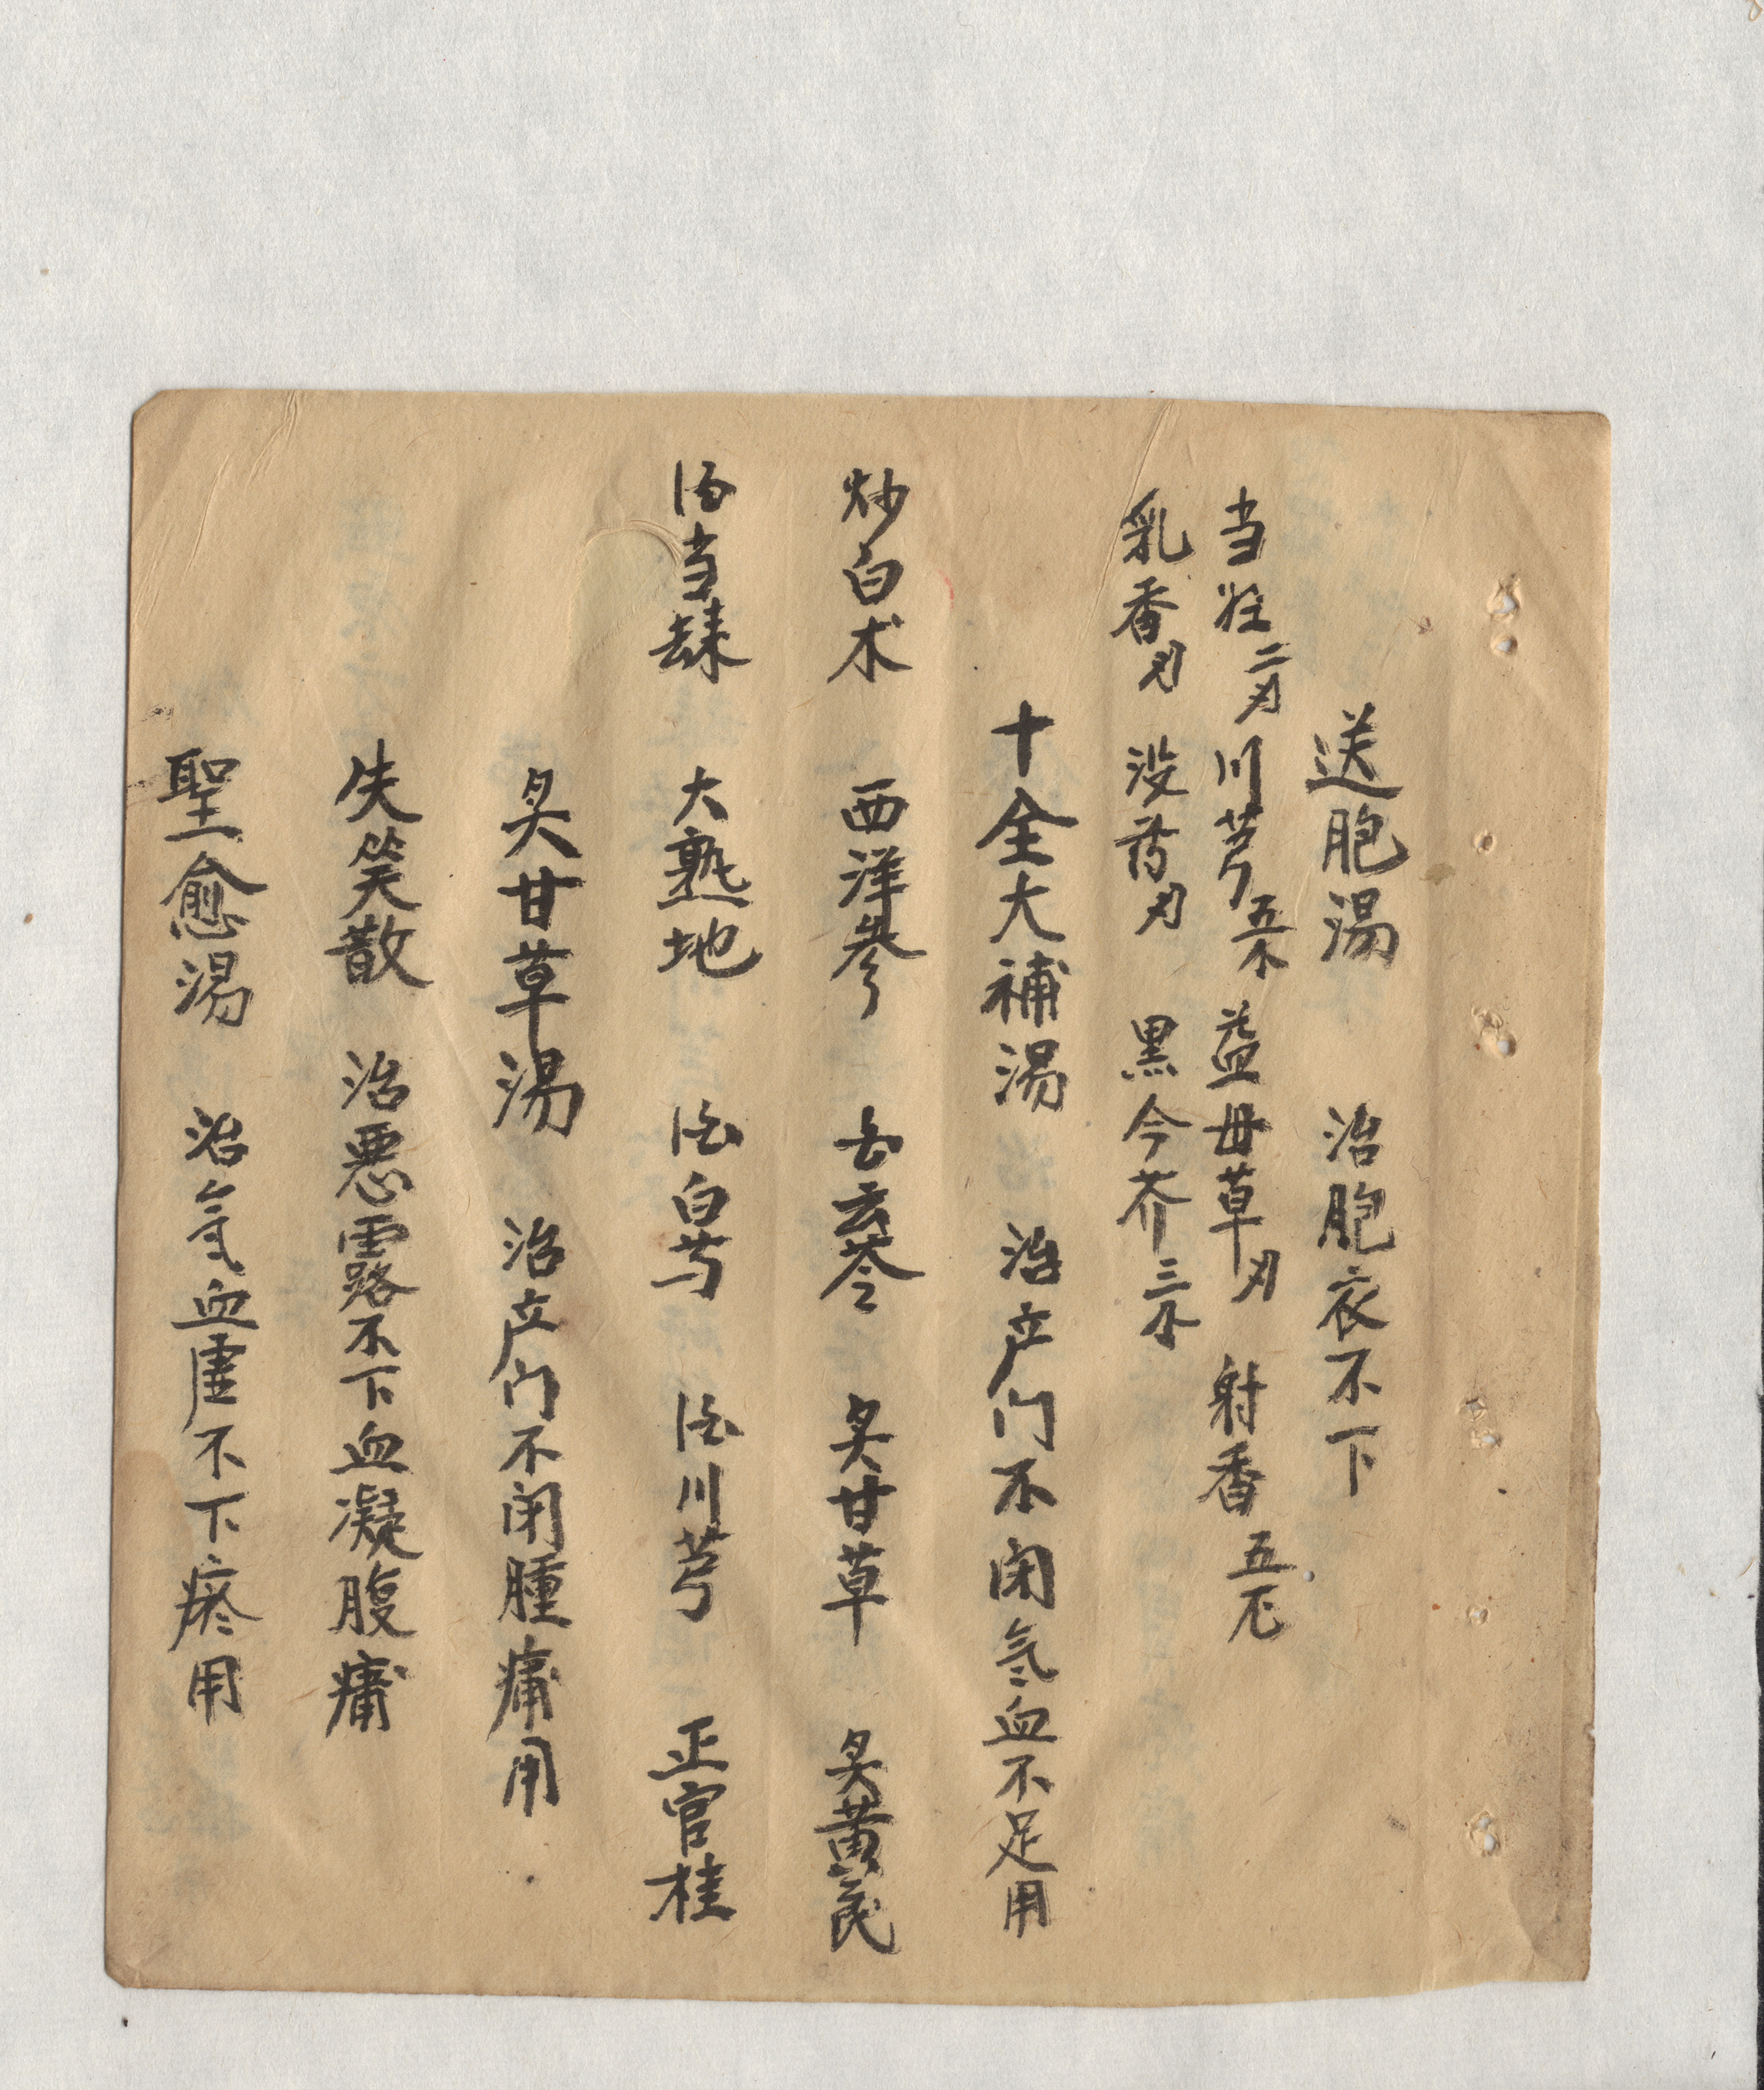 送胞湯　治胞衣不下
当归二刄　川芎五木　益母草刄　射香五厘
乳香刄　没药刄　黑今芥三木
十全大補湯　治产门不闭氣血不足用
炒白术　西洋參　云苓　炙甘草　炙黄芪
酒当　大熟地　酒白芍　酒川芎　正官桂
炙甘草湯　治产门不闭腫痛用
失笑散　治悪露不下血凝腹痛
聖愈湯　治氣血虚不下疼用